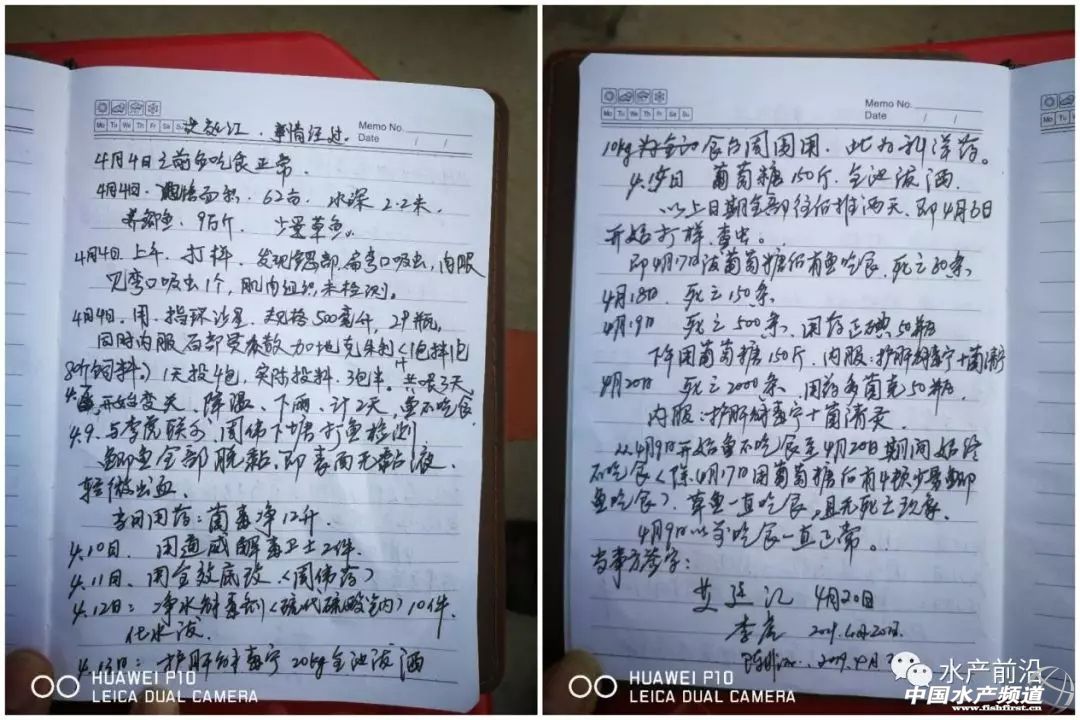 Mo Tu We Th Fr Sa Su
Memo No.
Date /
事情经过.
4月4日之前鱼吃食正常.
4月4日. 面积. 62亩. 水深 2.2米.
养鲫鱼. 9万斤 少量草鱼.
4月4日 上午. 打样. 发现鳃部.扁弯口吸虫,肉眼
见弯口吸虫1个,肌肉组织未检测。
4月4日.用. 指环沙星. 规格500毫升, 29瓶,
同时内服百部贯众散加地克珠利<1包拌1包
80斤饲料.> 1天投4包,实际投料.3包半。共喂3天
开始变天、降温、下雨、计2天,鱼不吃食
4.9.与李虎联系 周伟下塘打鱼检测
鲫鱼全部脱黏.即表面无黏液.
轻微出血.
当日用药:菌毒净12升.
4.10日. 用道威解毒卫士2件.
4.11日、用全效底改.<周伟药>
4.12日: 净水解毒剂<硫代硫酸钠> 10件.
化水泼.
4.13日: 护肝解毒宁 20kg全池泼洒
HUAWEI P10
LEICA DUAL CAMERA
Mo Tu We Th Fr Sa Su
Memo No.
Date /
10kg 食台周围用. 此为利洋药。
4.15日 葡萄糖150斤.全池泼洒.
以上日期全部往后推两天.即4月6日
开始打样.查虫。
即4月17日泼葡萄糖后有鱼吃食.死亡80条.
4月18日. 死亡150条.
4月19日 死亡500条、用药 碘50瓶
下午用葡萄糖150斤. 内服:护肝解毒宁+菌清
4月20日 死亡2000条、用药 菌克50瓶
内服:护肝解毒宁+菌清
从4月9日开始鱼不吃食至4月20日期间始终
不吃食<除4月17日用葡萄糖后有 少量鲫
鱼吃食>. 草鱼一直吃食,且无死亡现象.
4月9日以前吃食一直正常。
当事方签字:
4月20日
李虎
HUAWEI P10
LEICA DUAL CAMERA
水产前沿
中国水产频道
www.fishfirst.cn